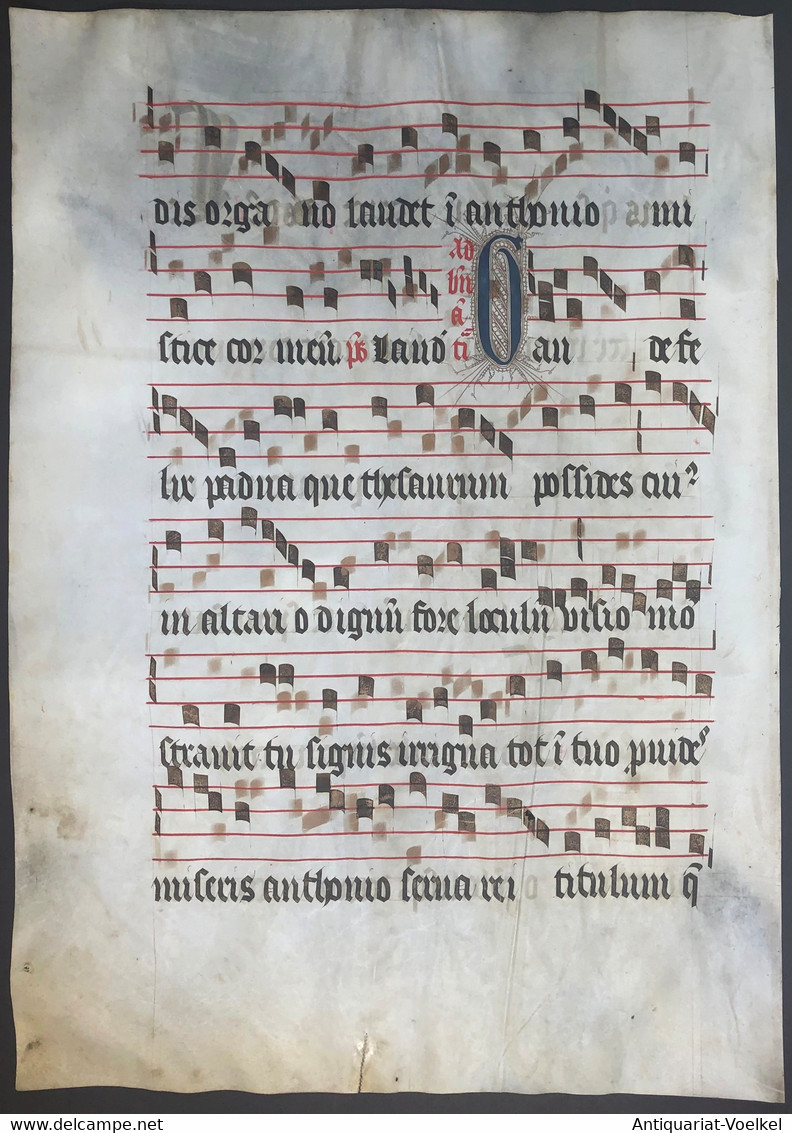 dis orga no laudet ī anthonio mi
stice cor meū. ps Laud ad bn̄ ā. Gau de fe
lix padua que thesaurum possides cui⁹
in altari o dignū fore loculū visio mō
stravit tu signis irrigua tot ī tuo puideˢ
miseris anthonio serua rei titulum q̄
Antiquariat-Voelkel